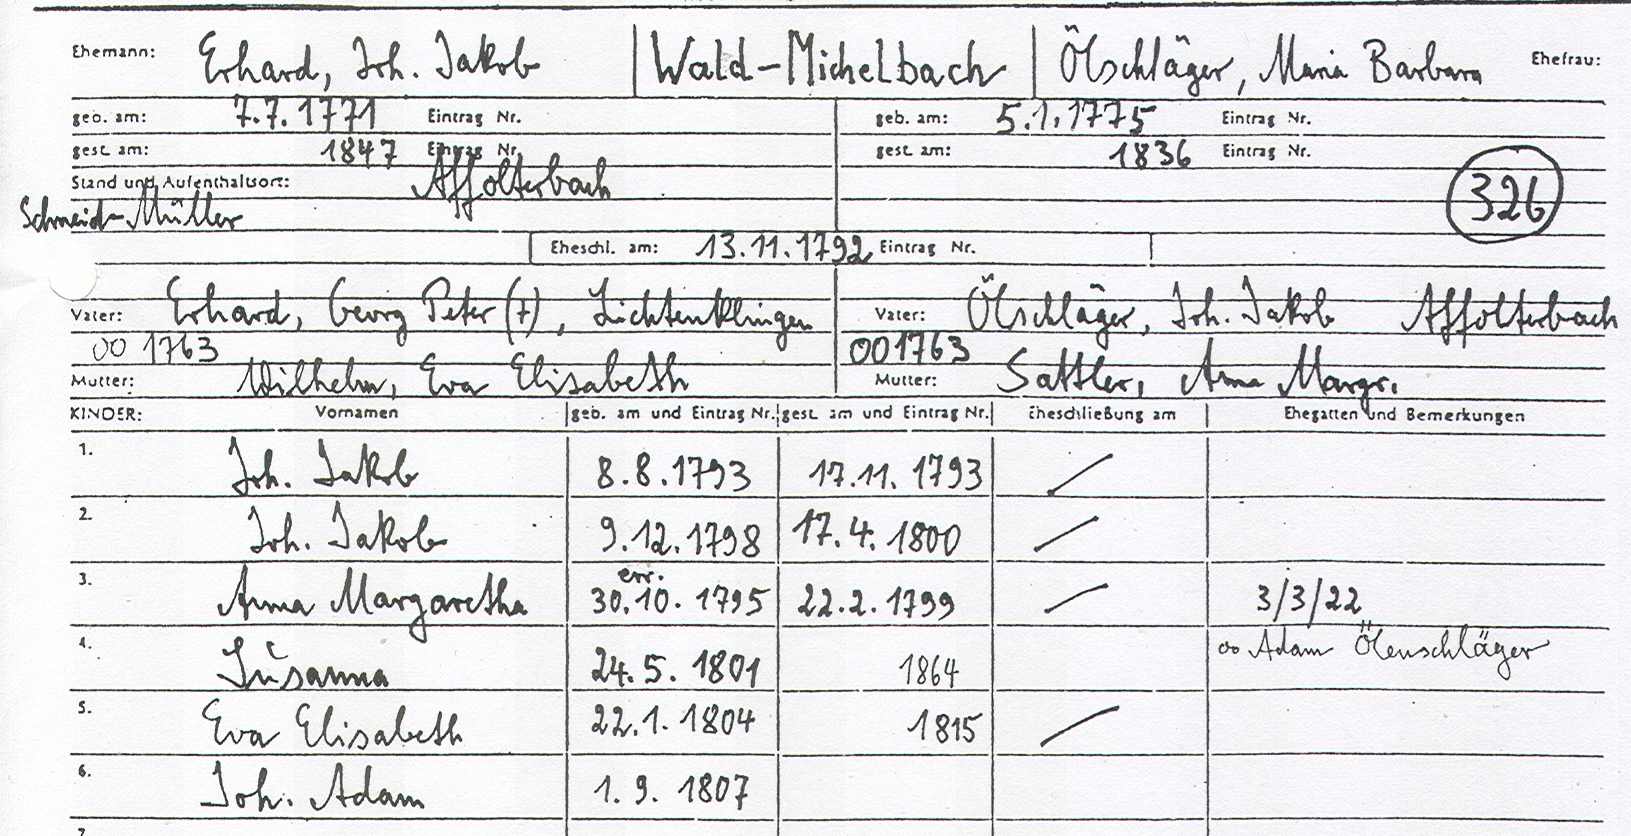 Ehemann: Erhard, Joh. Jakob Wald-Michelbach Ölschläger, Maria Barbara Ehefrau:
geb. am: 7.7.1771 Eintrag Nr. geb. am: 5.1.1775 Eintrag Nr.
gest. am: 1847 Eintrag Nr. gest. am: 1836 Eintrag Nr.
Stand und Aufenthaltsort: Affolterbach 326
Schneid-Müller
Eheschl. am: 13.11.1792 Eintrag Nr.
Vater: Erhard, Georg Peter (†), Lichtenklingen Vater: Ölschläger, Joh. Jakob Affolterbach
oo 1763 oo 1763
Mutter: Wilhelm, Eva Elisabeth Mutter: Sattler, Anna Margr.
KINDER: Vornamen geb. am und Eintrag Nr. gest. am und Eintrag Nr. Eheschließung am Ehegatten und Bemerkungen
1. Joh. Jakob 8.8.1793 17.11.1793 /
2. Joh. Jakob 9.12.1798 17.4.1800 /
err.
3. Anna Margaretha 30.10.1795 22.2.1799 / 3/3/22
4. Susanna 24.5.1801 1864 oo Adam Ölenschläger
5. Eva Elisabeth 22.1.1804 1815 /
6. Joh. Adam 1.9.1807
7.